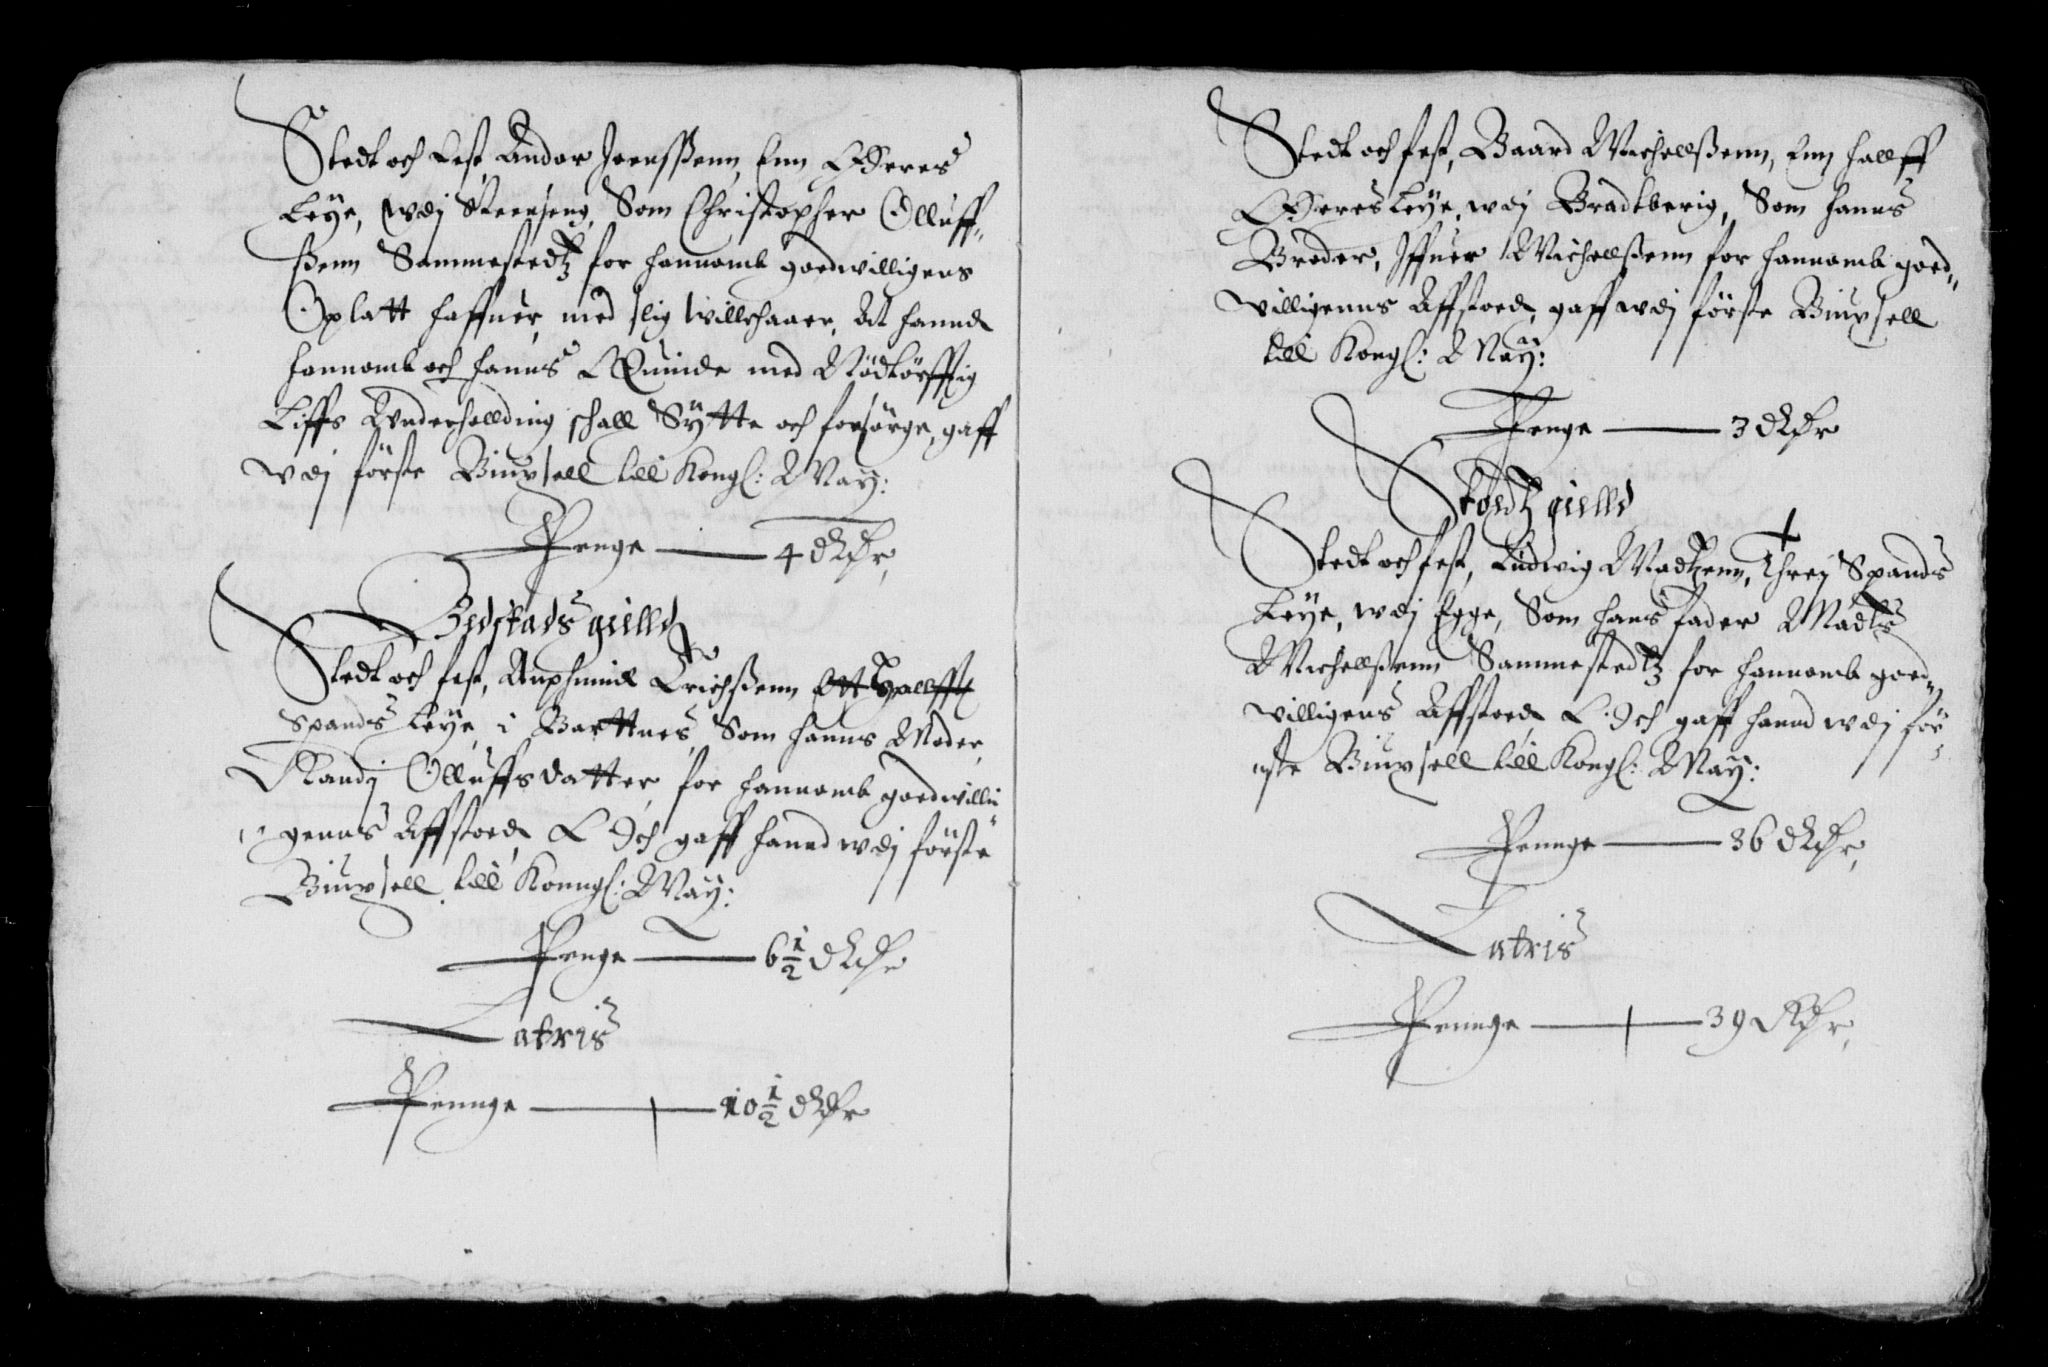 Stedt och Fest, Andor Joenssenn, Enn Øeres
Leye, wdj Steenseng, Som Christopher Olluff-
ßenn Sammestedtz for hannomb goedwilligens
Oplatt haffuer, med slig willchaaer, At hannd
hannomb och hanns Quinde med Nödtörfftig
Liffs Vnderholldning schall Sÿtte och forsörge, gaff
wdj förste Biuxsell till Kongl: May:
Penge — 4 dlr,
Bedstads gielld
Stedt och fest, Amphind Erichßenn Ett Hallfft
Spands Leye, i Barttnes, Som hanns Moder,
Randj Olluffsdatter, for hannomb goedwilli
genns Affstoed, Och gaff hannd wdj förste
Biuxsell till Konngl: May:
Penge — 6 1/2 dlr
Latris
Pennge — 10 1/2 dlr
Stedt och fest, Baard Michellßenn, Enn hallff
Øeres Leye, wdj Bradtberig, Som hanns
Broder, Iffuer Michellßenn for hannomb goed-
willigenns Affstoed, gaff wdj förste Biuxsell
till Kongl: May:
Penge — 3 dlr
Stodtz gielld
Stedt och fest, Ludwig Madtzenn, Threj Spands
Leye, wdj Egge, Som hans fader Madts
Michellßenn Sammestedtz for hannomb goed-
willigens Affstoed, Och gaff hannd wdj för-
ste Biuxsell till Kongl: May:
Pennge — 36 dlr,
Latris
Pennge — 39 dlr,